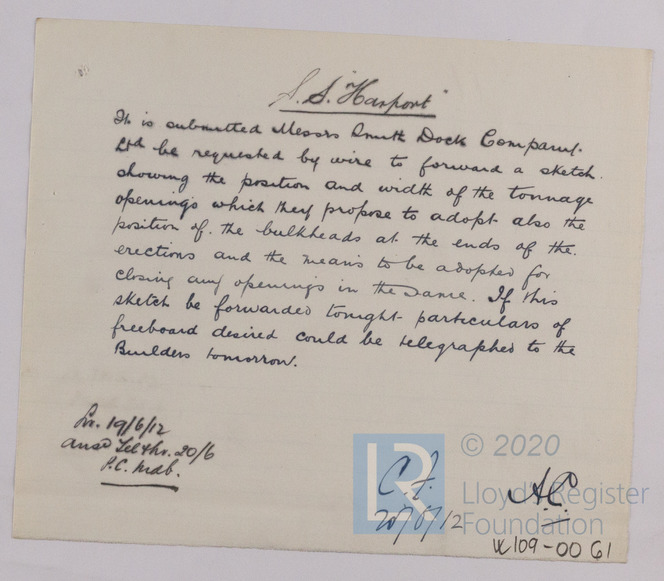 S.S. "Harport"
It is submitted Messrs Smith Dock Company.
Ltd be requested by wire to forward a sketch.
showing the position and width of the tonnage
openings which they propose to adopt also the
position of. the bulkheads at the ends of the.
erections and the means to be adopted for
closing any openings in the same. If this
sketch be forwarded tonight particulars of
freeboard desired could be telegraphed to the
Builders tomorrow.
19/6/12
20/6
P.C. Mdb.
C.J.
20/6/12
A.C.
© 2020
LR
Lloyd's Register
Foundation
W109-0061